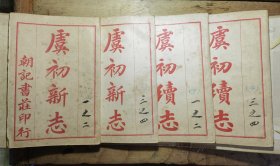 虞初新志
朝記書莊印行
一之二
虞初新志
三之四
虞初續志
一之二
虞初續志
三之四